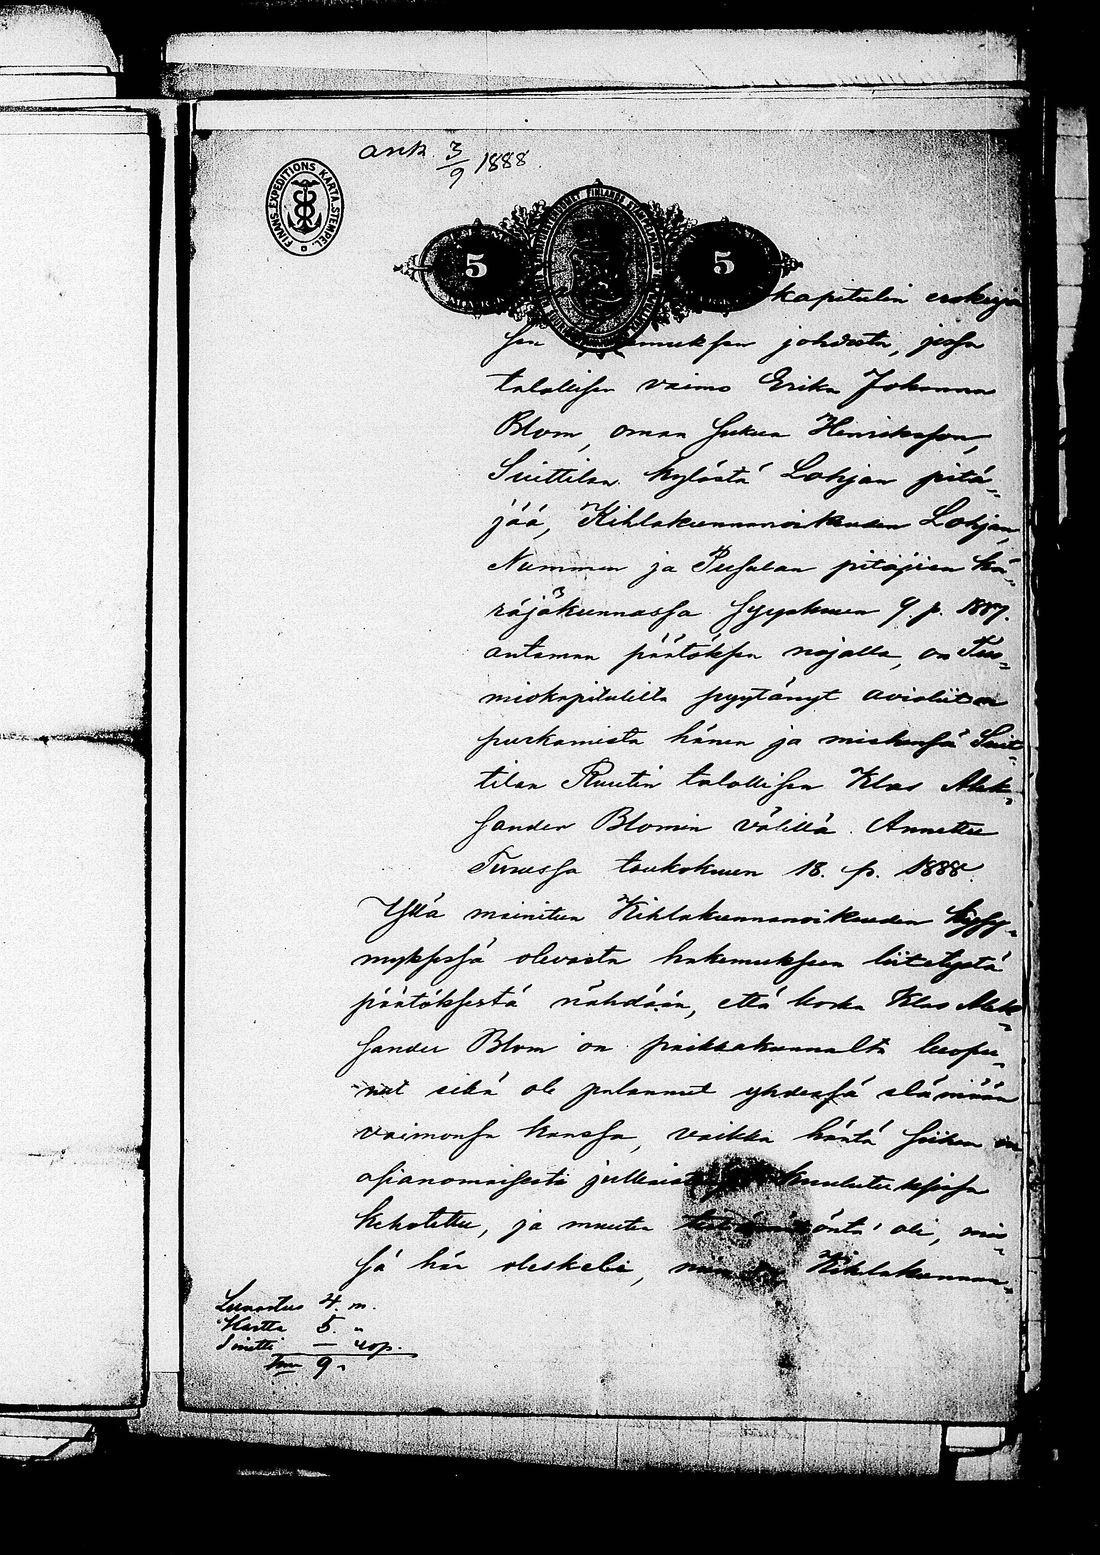 ank 3/9 1888
FINANS. EXPEDITIONS KARTA. STEMPEL.
5 5
kapitulin erokirjan
sen johdosta, jossa
talollisen vaimo Erika Johanna
Blom, oman sukua Henriksson,
Suittilan kylästä Lohjan pitä-
jää, Kihlakunnanoikeuden Lohjan,
Nummen ja Pusulan pitäjien kä-
räjäkunnassa syyskuun 9. p. 1887.
antaman päätöksen nojalla, on Tuo-
miokapitulilta pyytänyt avioliiton
purkamista hänen ja miehensä Suit-
tilan Ruutin talollisen Klas Alek-
sander Blomin välillä. Annettu
Turussa toukokuun 18. p. 1888.
Yllä mainitun Kihlakunnanoikeuden kysy-
myksessä olevasta hakemukseen liitetystä
päätöksestä nähdään, että koska Klas Alek-
sander Blom on paikkakunnalta luopu-
nut eikä ole palannut yhdessä elämään
vaimonsa kanssa, vaikka häntä siihen on
asianomaisesti kuulutuksissa
kehotettu, ja muuten tietämätöntä oli, mis-
sä hän oleskeli, niin Kihlakunnan-
Lunastus 4. m.
Kartta 5. "
Sinetti — 40p.
Smr 9 "